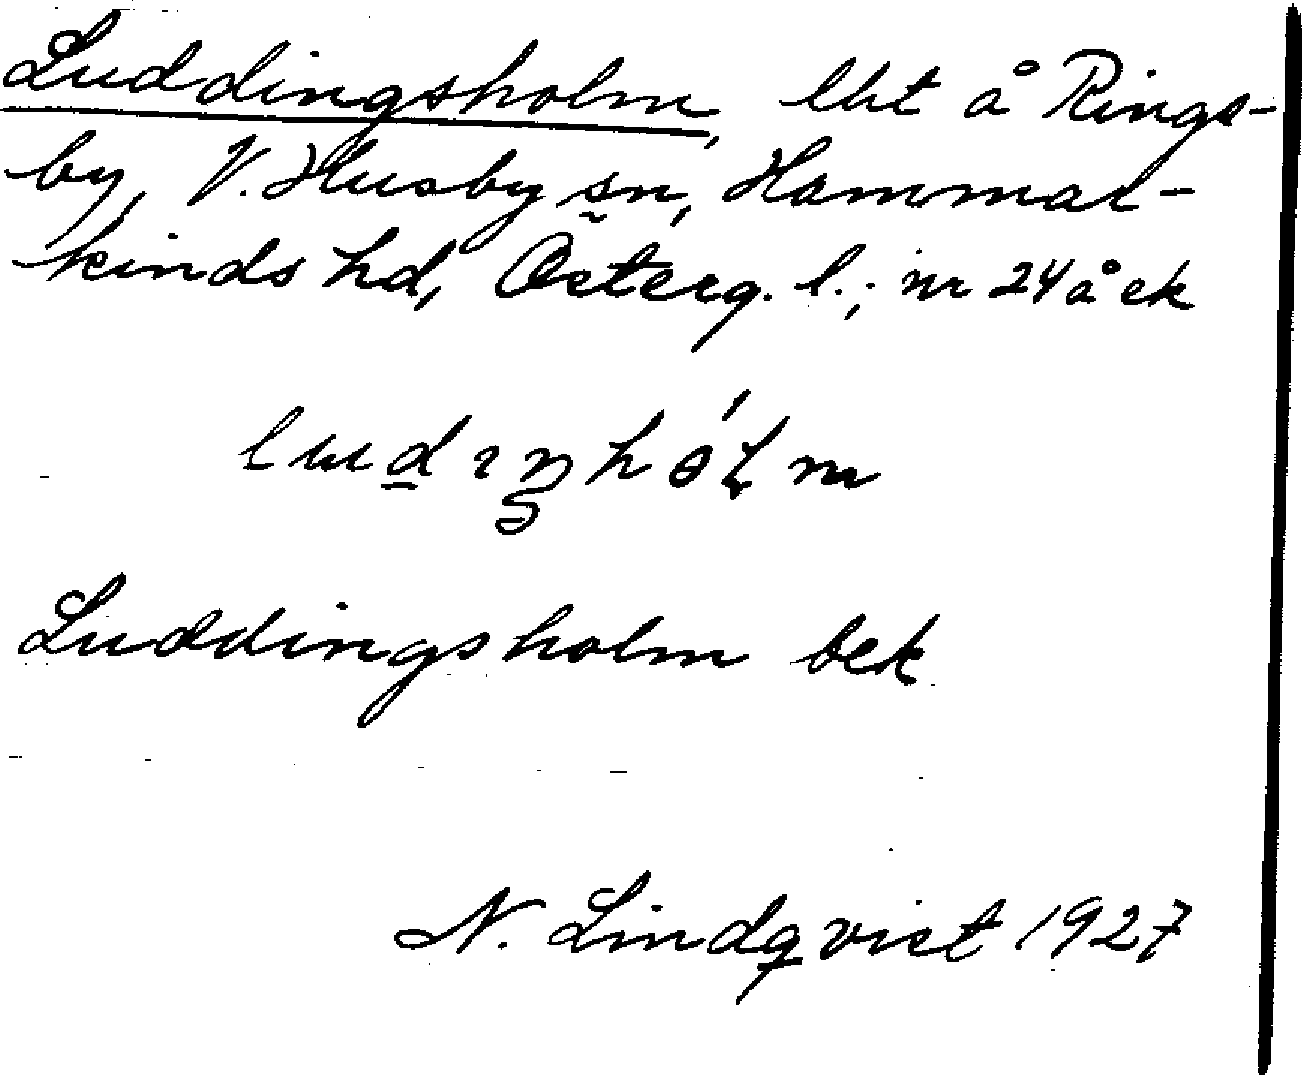 Luddingsholm, lht å Rings-
by, V. Husby sn, Hammar-
kinds hd, Österg. l.; nr 24 å ek
Luddingsholm bek
N. Lindqvist 1927